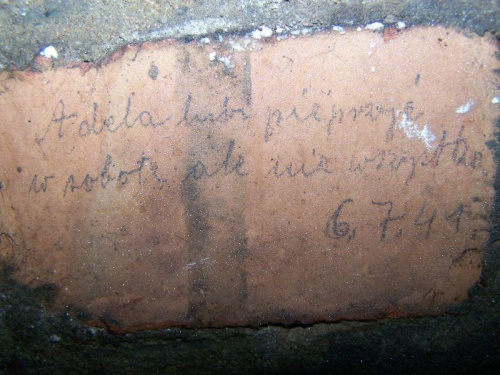 Adela lubi pieprzyć
w sobotę ale nie wszystko
6.7.41.